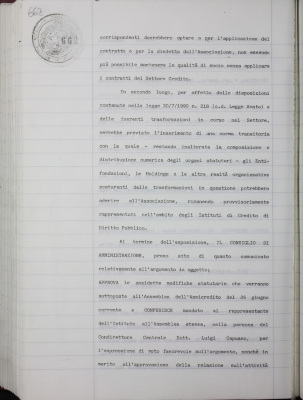 662
662
corrispondenti dovrebbero optare o per l'applicazione del
contratto o per la disdetta dall'Associazione, non essendo
più possibile mantenere la qualità di socio senza applicare
i contratti del Settore Credito.
In secondo luogo, per effetto delle disposizioni
contenute nella legge 30/7/1990 n. 218 (c.d. Legge Amato) e
delle inerenti trasformazioni in corso nel Settore,
verrebbe previsto l'inserimento di una norma transitoria
con la quale - restando inalterata la composizione e
distribuzione numerica degli organi statutari - gli Enti-
fondazioni, le Holdings e le altre realtà organizzative
scaturenti dalle trasformazioni in questione potrebbero
aderire all'Associazione, rimanendo provvisoriamente
rappresentati nell'ambito degli Istituti di Credito di
Diritto Pubblico.
Al termine dell'esposizione, IL CONSIGLIO DI
AMMINISTRAZIONE, preso atto di quanto comunicato
relativamente all'argomento in oggetto;
APPROVA le anzidette modifiche statutarie che verranno
sottoposte all'Assemblea dell'Assicredito del 26 giugno
corrente e CONFERISCE mandato al rappresentante
dell'Istituto all'Assemblea stessa, nella persona del
Condirettore Centrale Dott. Luigi Capuano, per
l'espressione di voto favorevole sull'argomento, nonchè in
merito all'approvazione della relazione sull'attività